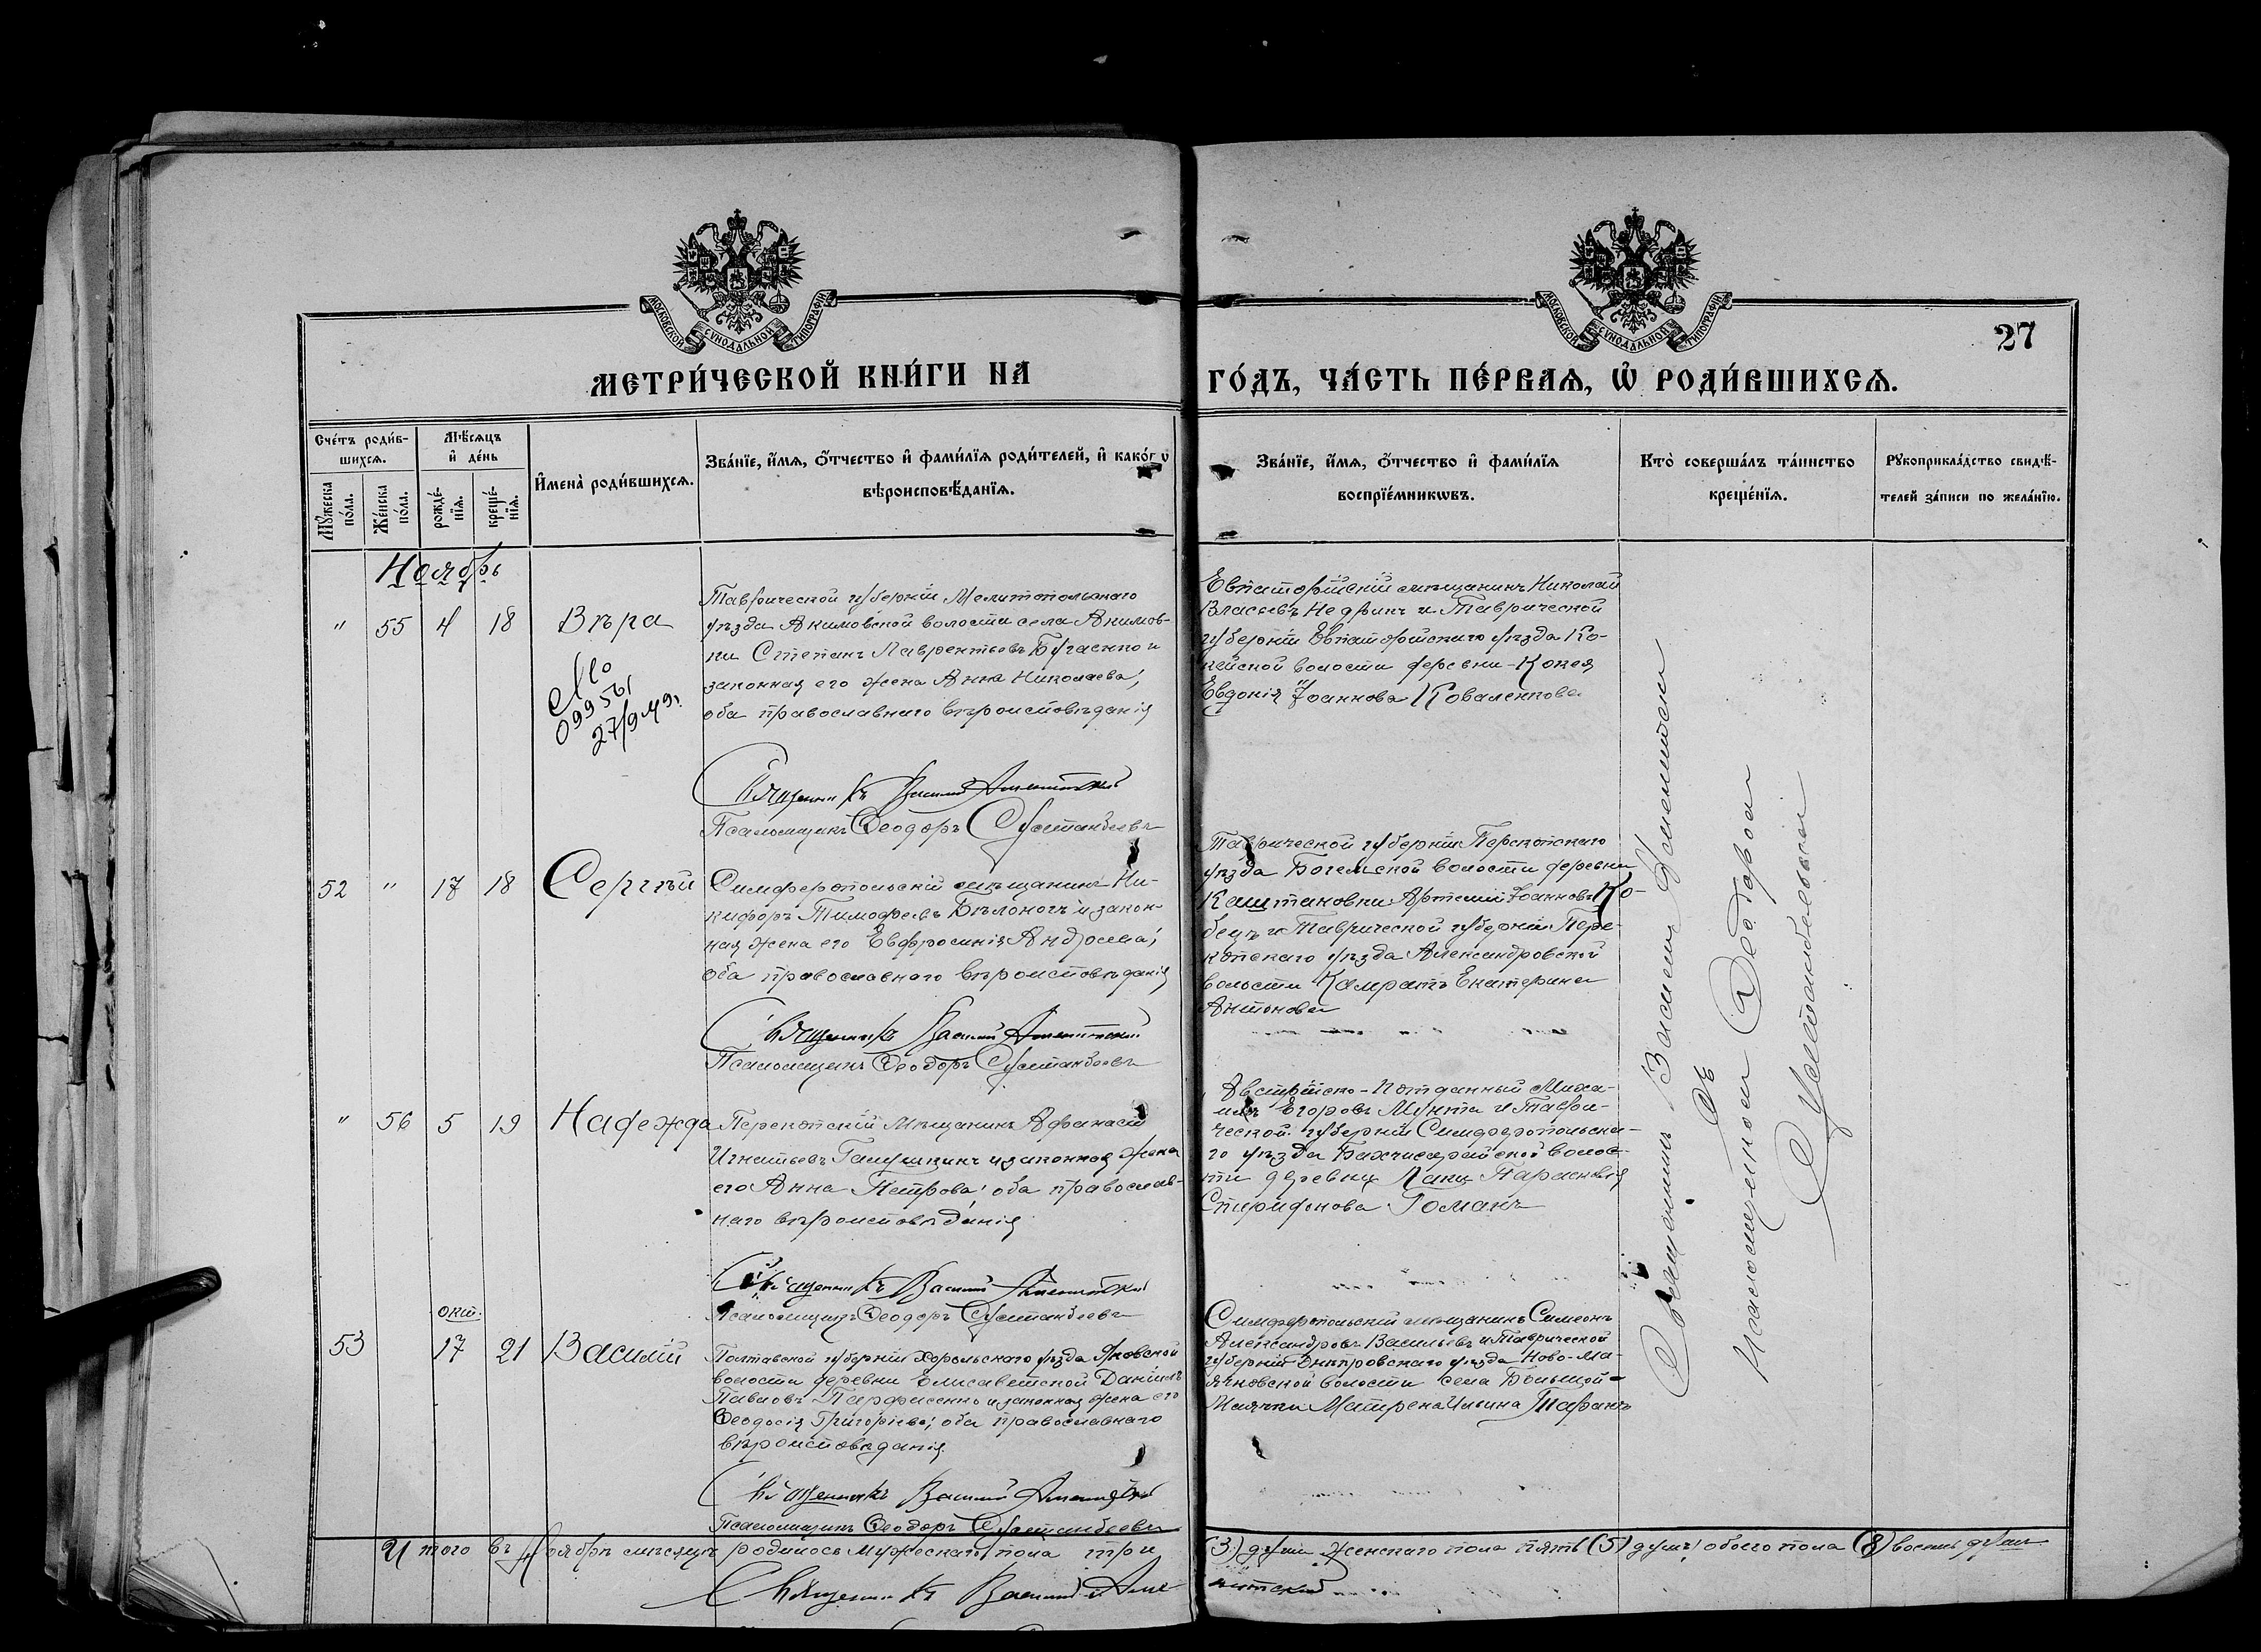 МОСКОВСКОЙ СѴНОДАЛЬНОЙ ТИПОГРАФІИ
МОСКОВСКОЙ СѴНОДАЛЬНОЙ ТИПОГРАФІИ
27
МЕТРИ́ЧЕСКОЙ КНИ́ГИ НА
ГО́ДЪ, ЧА́СТЬ ПЕ́РВАѦ, Ѡ҆ РОДИ́ВШИХСѦ.
Сче́тъ роди́в-
шихсѧ.
Мѣ́сѧцъ
и҆ де́нь
Мꙋ́жеска
по́ла.
Же́нска
по́ла.
рожде́-
нїѧ.
креще́-
нїѧ.
И҆мена̀ роди́вшихсѧ.
Зва́нїе, и҆́мѧ, ѻ҆́тчество и҆ фами́лїѧ роди́телей, и҆ како́гѡ
вѣроисповѣ́данїѧ.
Зва́нїе, и҆́мѧ, ѻ҆́тчество и҆ фами́лїѧ
воспрїе́мникѡвъ.
Кто̀ соверша́лъ та́инство
креще́нїѧ.
Рꙋкоприкла́дство свидѣ́-
телей за́писи по жела́нїю.
Ноябрь
" 55 4 18 Вѣра
099561
27/9 49г.
Таврической губерніи Мелитопольскаго
уѣзда Акимовской волости села Акимов-
ки Степанъ Лаврентьевъ Бугаенко и
законная его жена Анна Николаева;
оба православнаго вѣроисповѣданія
Священникъ Василій
Псаломщикъ Ѳеодоръ Султанбеевъ
Евпаторійскій мѣщанинъ Николай
Власьевъ и Таврической
губерніи Евпаторійскаго уѣзда Ко-
кейской волости деревни Кокея
Евдокія Іоаннова Коваленкова
52 " 17 18 Сергѣй
Симферопольскій мѣщанинъ Ни-
кифоръ Тимофеевъ Бѣлоногъ и закон-
ная жена его Евфросинія Андреева;
оба православнаго вѣроисповѣданія
Священникъ Василій
Псаломщикъ Ѳеодоръ Султанбеевъ
Таврической губерніи Перекопскаго
уѣзда Богемской волости деревни
Каштановки Артемій Іоанновъ Ко-
бецъ и Таврической губерніи Пере-
копскаго уѣзда Александровской
волости Камратъ Екатерина
Антонова
" 56 5 19 Надежда
Перекопскій мѣщанинъ Афанасій
Игнатьевъ Галушкинъ и законная жена
его Анна Петрова; оба православ-
наго вѣроисповѣданія
Священникъ Василій
Псаломщикъ Ѳеодоръ Султанбеевъ
Австрійско-подданный Миха-
илъ Егоровъ Мунта и Таври-
ческой губерніи Симферопольска-
го уѣзда Бахчисарайской волос-
ти деревни Лаки Параскевія
Спиридонова Романъ
окт.
53 17 21 Василій
Полтавской губерніи Хорольскаго уѣзда Яновской
волости деревни Елисаветской Даніилъ
Павловъ Парфиенко и законная жена его
Ѳеодосія Григорьева; оба православнаго
вѣроисповѣданія
Священникъ Василій
Псаломщикъ Ѳеодоръ Султанбеевъ
Симферопольскій мѣщанинъ Симеонъ
Александровъ Васильевъ и Таврической
губерніи Днѣпровскаго уѣзда Ново-Ма-
ячковской волости села Большой-
Маячки Матрена Ильина Таранъ
Священникъ Василій
съ
псаломщикомъ Ѳеодоромъ
Султанбеевымъ
Итого въ Ноябрѣ мѣсяцѣ родилось мужескаго пола три (3) души женскаго пола пять (5) душъ, обоего пола (8) восемь душъ
Священникъ Василій